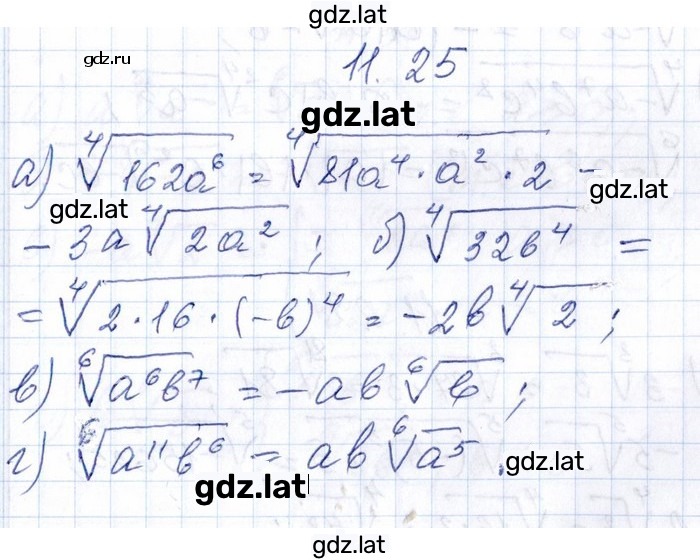 gdz.lat
gdz.ru
11. 25
gdz.lat
а) ⁴√162a⁶ = ⁴√81a⁴ · a² · 2 -
gdz.lat
gdz.lat
- 3a ⁴√2a² ; б) ⁴√32b⁴ =
= ⁴√2 · 16 · (-b)⁴ = -2b ⁴√2 ;
в) ⁶√a⁶b⁷ = -ab ⁶√b ;
г) ⁶√a¹¹b⁶ = ab ⁶√a⁵ .
gdz.lat
gdz.lat
gdz.lat